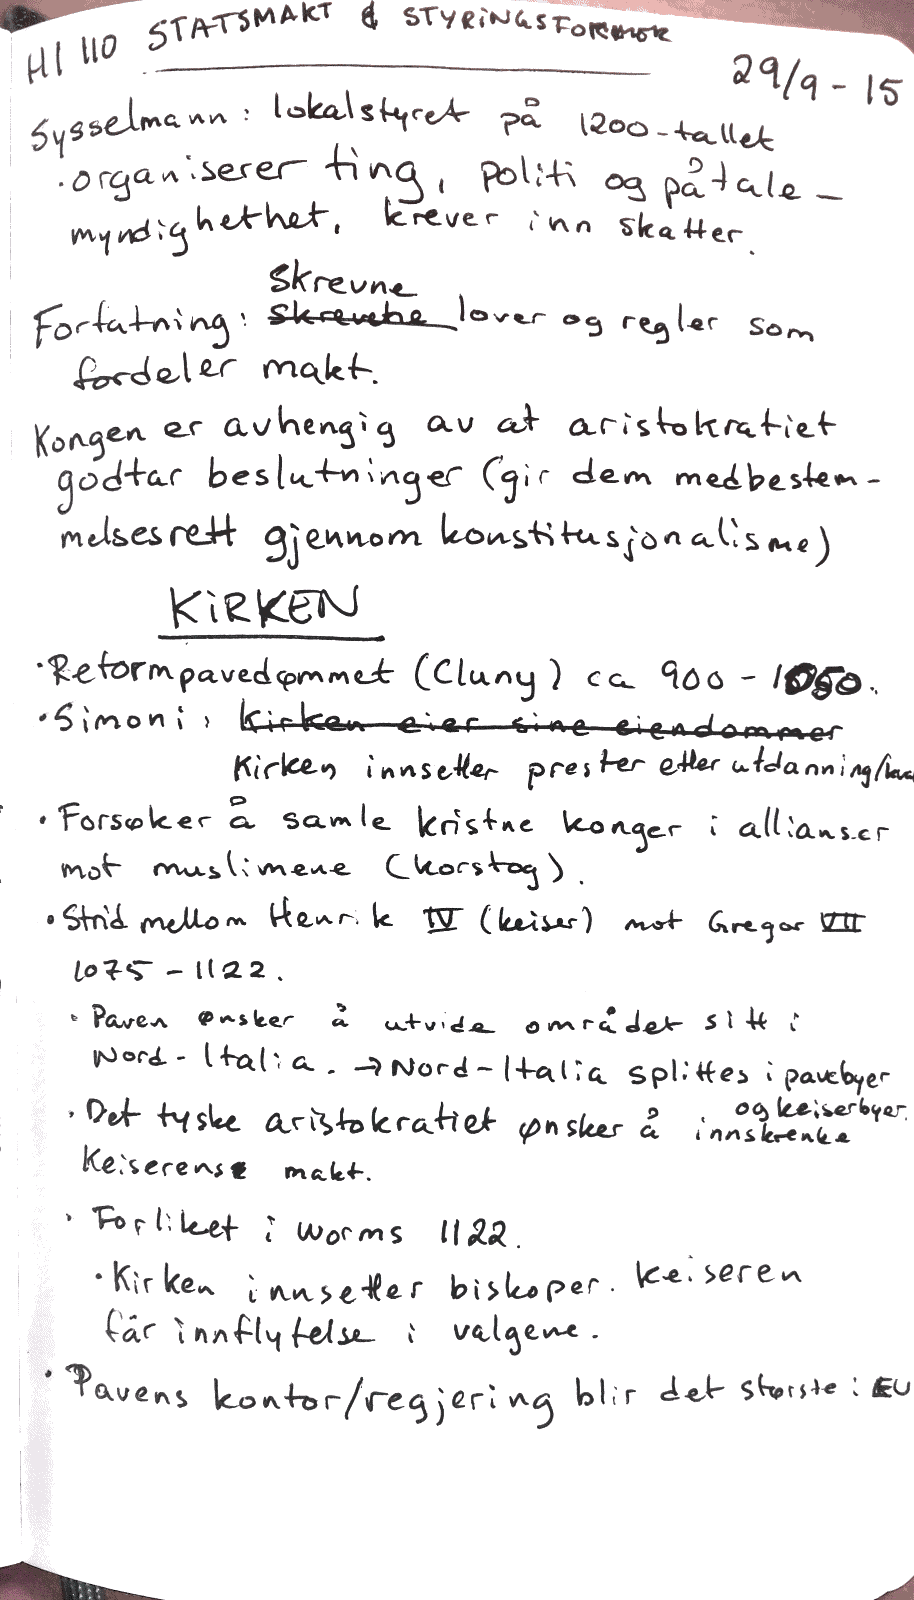 HI 110 STATSMAKT & STYRINGSFORMER
29/9 - 15
Sysselmann: lokalstyret på 1200-tallet
· organiserer ting, politi og påtale-
myndighethet, krever inn skatter.
Skrevne
Forfatning: lover og regler som
fordeler makt.
Kongen er avhengig av at aristokratiet
godtar beslutninger (gir dem medbestem-
melsesrett gjennom konstitusjonalisme)
KIRKEN
· Reformpavedømmet (Cluny) ca 900 - 1050.
· Simoni: Kirken eier sine eiendommer
Kirken innsetter prester etter utdanning/
· Forsøker å samle kristne konger i allianser
mot muslimene (korstog).
· Strid mellom Henrik IV (keiser) mot Gregor VII
1075 - 1122.
· Paven ønsker å utvide området sitt i
Nord-Italia. → Nord-Italia splittes i pavebyer
og keiserbyer.
· Det tyske aristokratiet ønsker å innskrenke
Keiserens makt.
· Forliket i Worms 1122.
· Kirken innsetter biskoper. Keiseren
får innflytelse i valgene.
· Pavens kontor/regjering blir det største i EU